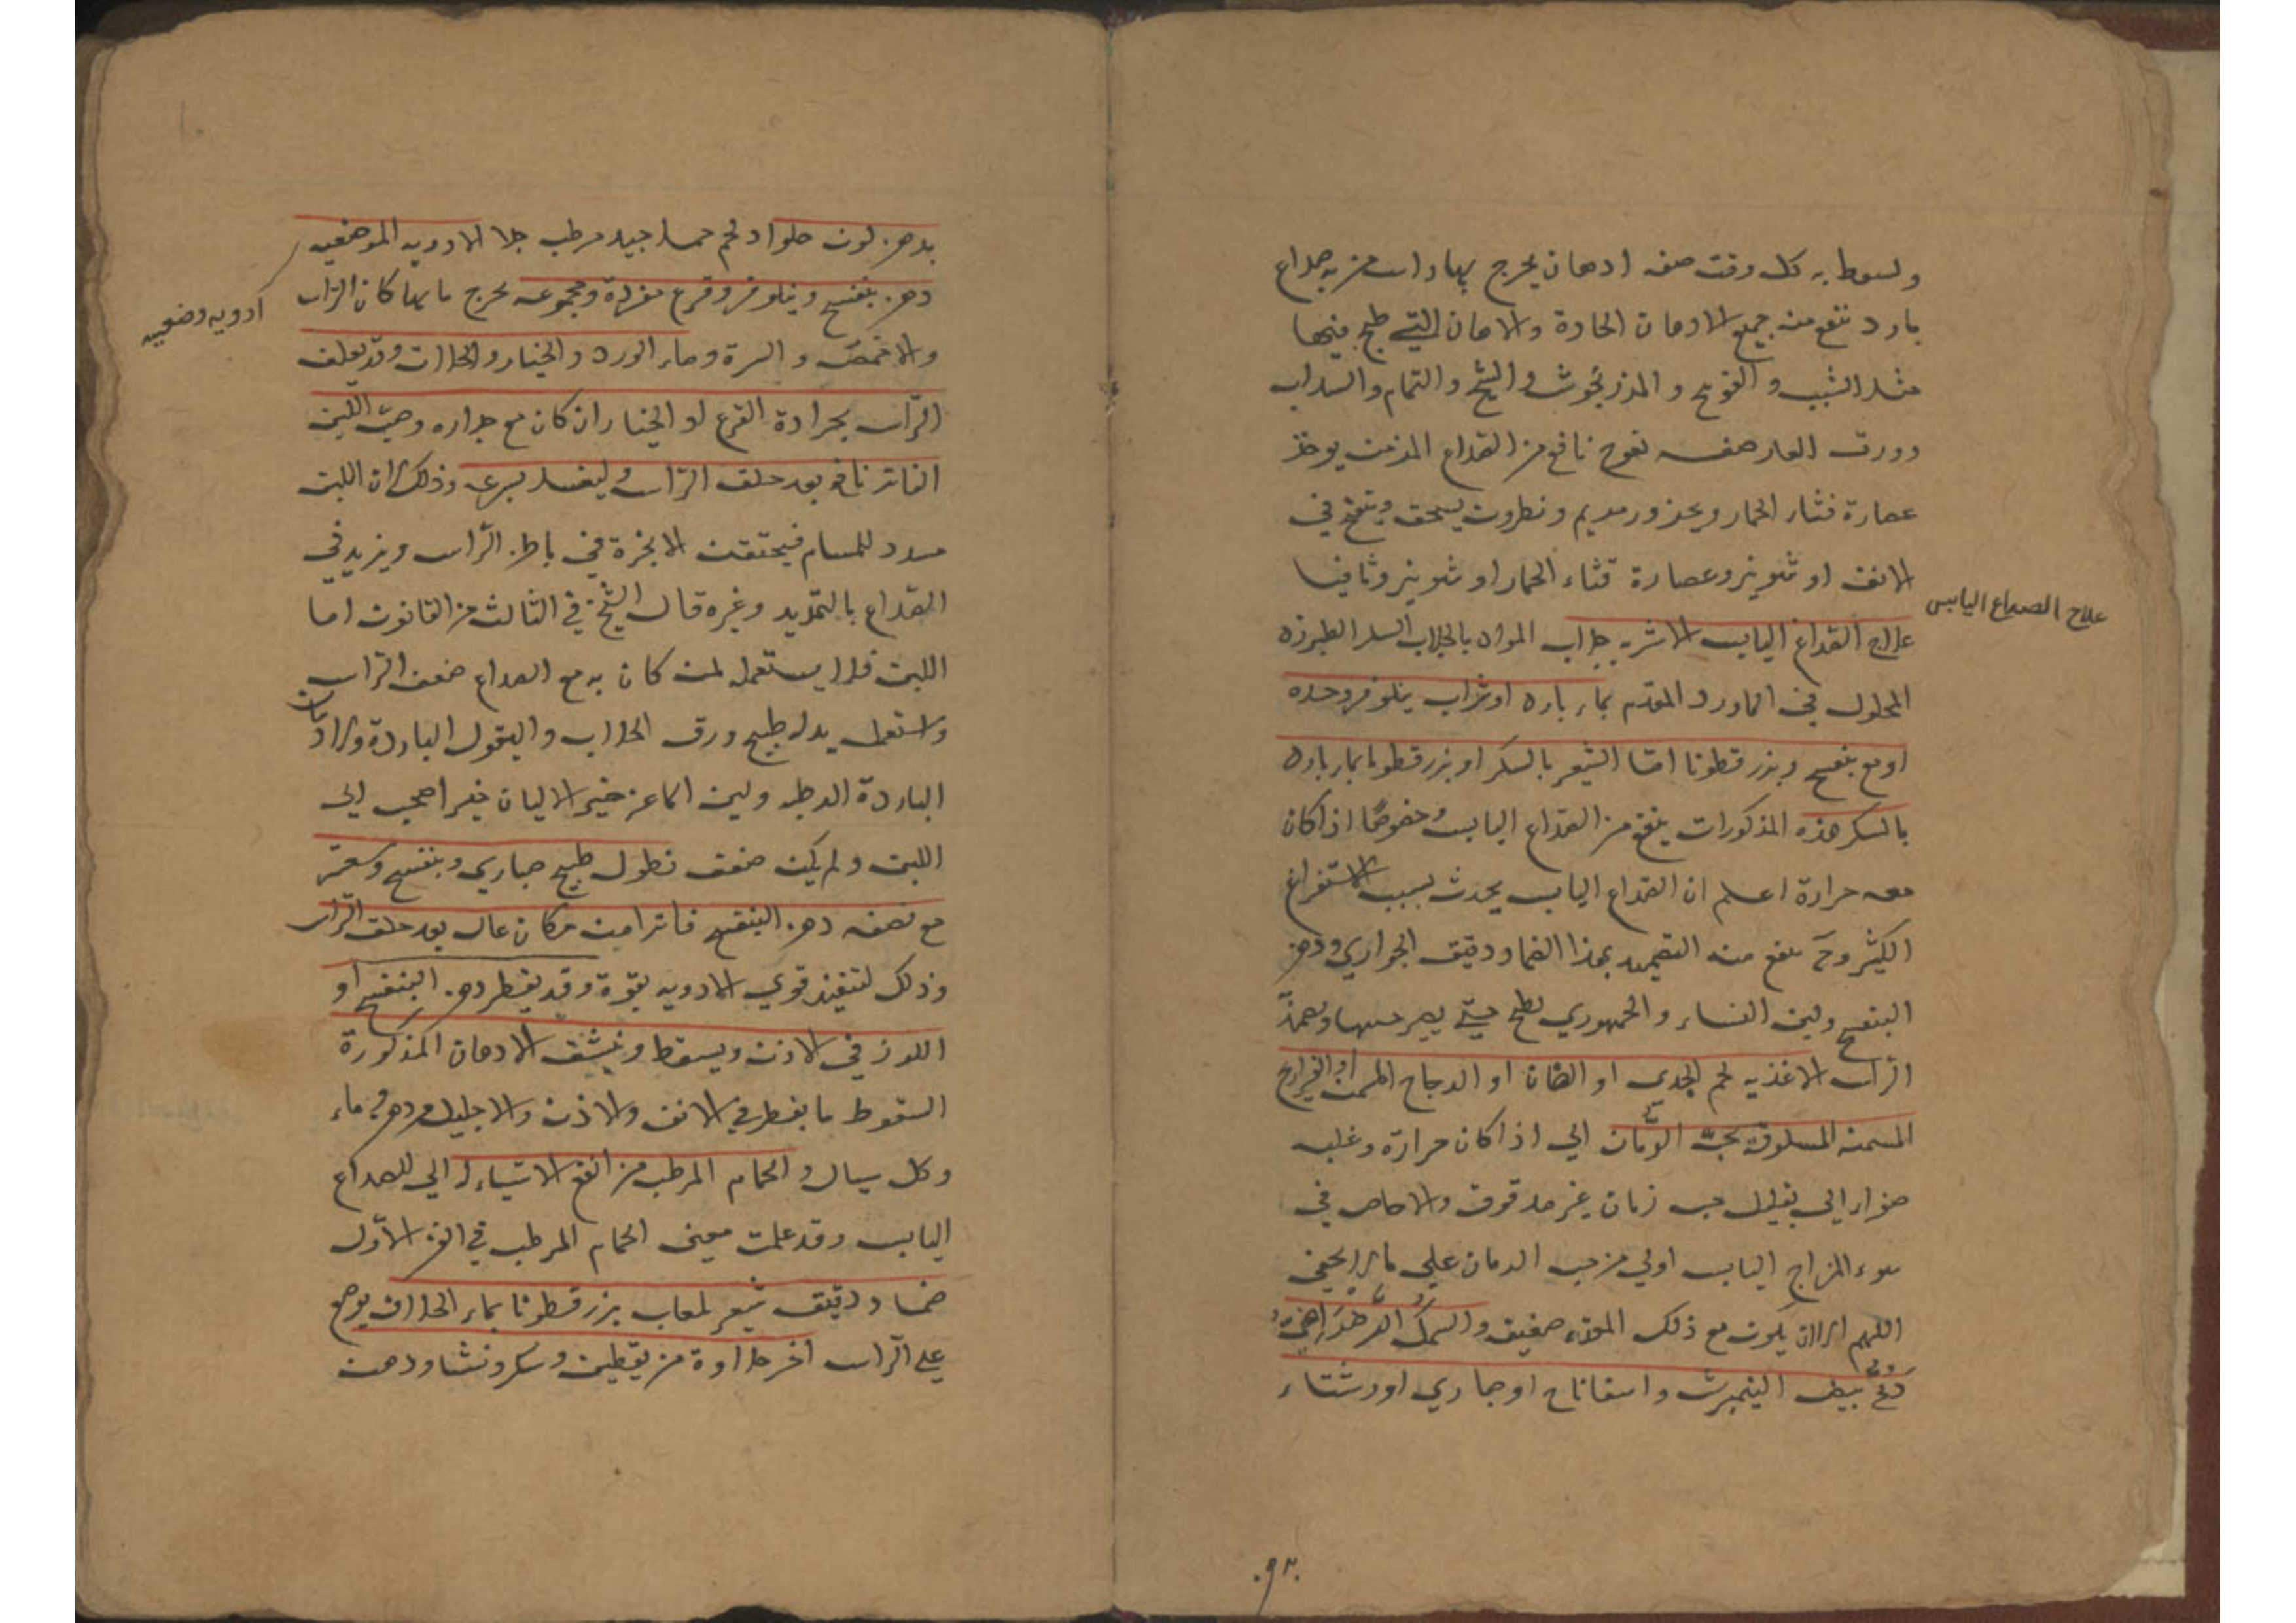 ولسعوط به كل وقت صفه ادهان يخرج بها راس من به صداع
بارد تنفع منه جميع الادهان الحادة والادهان التي طبخ فيها
مثل الشبث و الفوتنج و المرزنجوش والشيح والنمام والسداب
وورق الغار صفه نفوخ نافع من الصداع المزمن يوخذ
عصارة قثاء الحمار وبخور مريم ونطرون يسحق وينفخ في
الانف او شونيز وعصارة قثاء الحمار او شونيز وثافيا
علاج الصداع اليابس
علاج الصداع اليابس الاشربه جلاب المواه بالجلاب السكر الطبرزد
المحلول في الماورد المقدم بماء بارد او شراب نيلوفر وحده
او مع بنفسج وبزر قطونا اما الشعير بالسكر او بزر قطونا بماء بارد
بالسكر هذه المذكورات ينفع من الصداع اليابس وخصوصًا اذا كان
معه حرارة اعلم ان الصداع اليابس يحدث بسبب الاستفراغ
الكثير وح ينفع منه التضميد بهذا الضماد دقيق الحواري ودهن
البنفسج ولبن النساء والجمهوري يطبخ حتي يصير
الراس الاغذيه لحم الجدي او الضان او الدجاج المسمن او الفراريج
المسمنه المسلوقة بحب الرمان اي اذا كان حرارة وغلبه
صفرا اي بقليل حب رمان غير مدقوق والاجاص في
سوء المزاج اليابس اولي من حب الرمان علي ما لا يخفي
اللهم الا ان يكون مع ذلك المعدة ضعيفه والسمك
بيض النيمبرشت واسفاناخ او خبازي او رشتاء
.٩٢.
بدهن لون حلوا ولحم حسا جيد مرطب جلا الادويه الموضعيه
ادويه وضعيه
دهن بنفسج ونيلوفر وقرع مفردة ومجموعه يخرج ما بها كان الراس
والاخمص والسرة وماء الورد والخيار والخلاف وقد يغلف
الراس بجرادة القرع او الخيار ان كان مع حراره وصب اللبن
الفاتر نافع بعد حلق الراس وليغسل بسرعه وذلك لان اللبن
مسدد للمسام فيحتقن الابخرة في باطن الراس ويزيد في
الصداع بالتمديد وغيره قال الشيخ في الثالث من القانون اما
اللبن فلا يستعمله لمن كان به مع الصداع ضعف الراس
واستعمل بدله طبيخ ورق الخلاف والبقول الباردة والادهان
الباردة الرطبه ولبن الماعز خير الالبان فغير اصحب الى
اللبن ولم يكن ضعف نطول طبيخ خبازي وبنفسج وشعير
مع نصفه دهن البنفسج فاترا من مكان عال بعد حلق الراس
وذلك لتنفيذ قوي الادويه بقوة وقد يقطر دهن البنفسج او
اللوز في الاذن ويسقط وينشق الادهان المذكورة
السعوط ما يقطر في الانف والاذن والاحليل من دهن وماء
وكل سيال والحمام المرطب من انفع الاشياء اي للصداع
اليابس وقد علمت معنى الحمام المرطب في الفن الاول
ضماد دقيق شعير لعاب بزر قطونا بماء الخلاف يوضع
علي الراس اخر حلاوة من يقطين وسكر ونشا ودهن